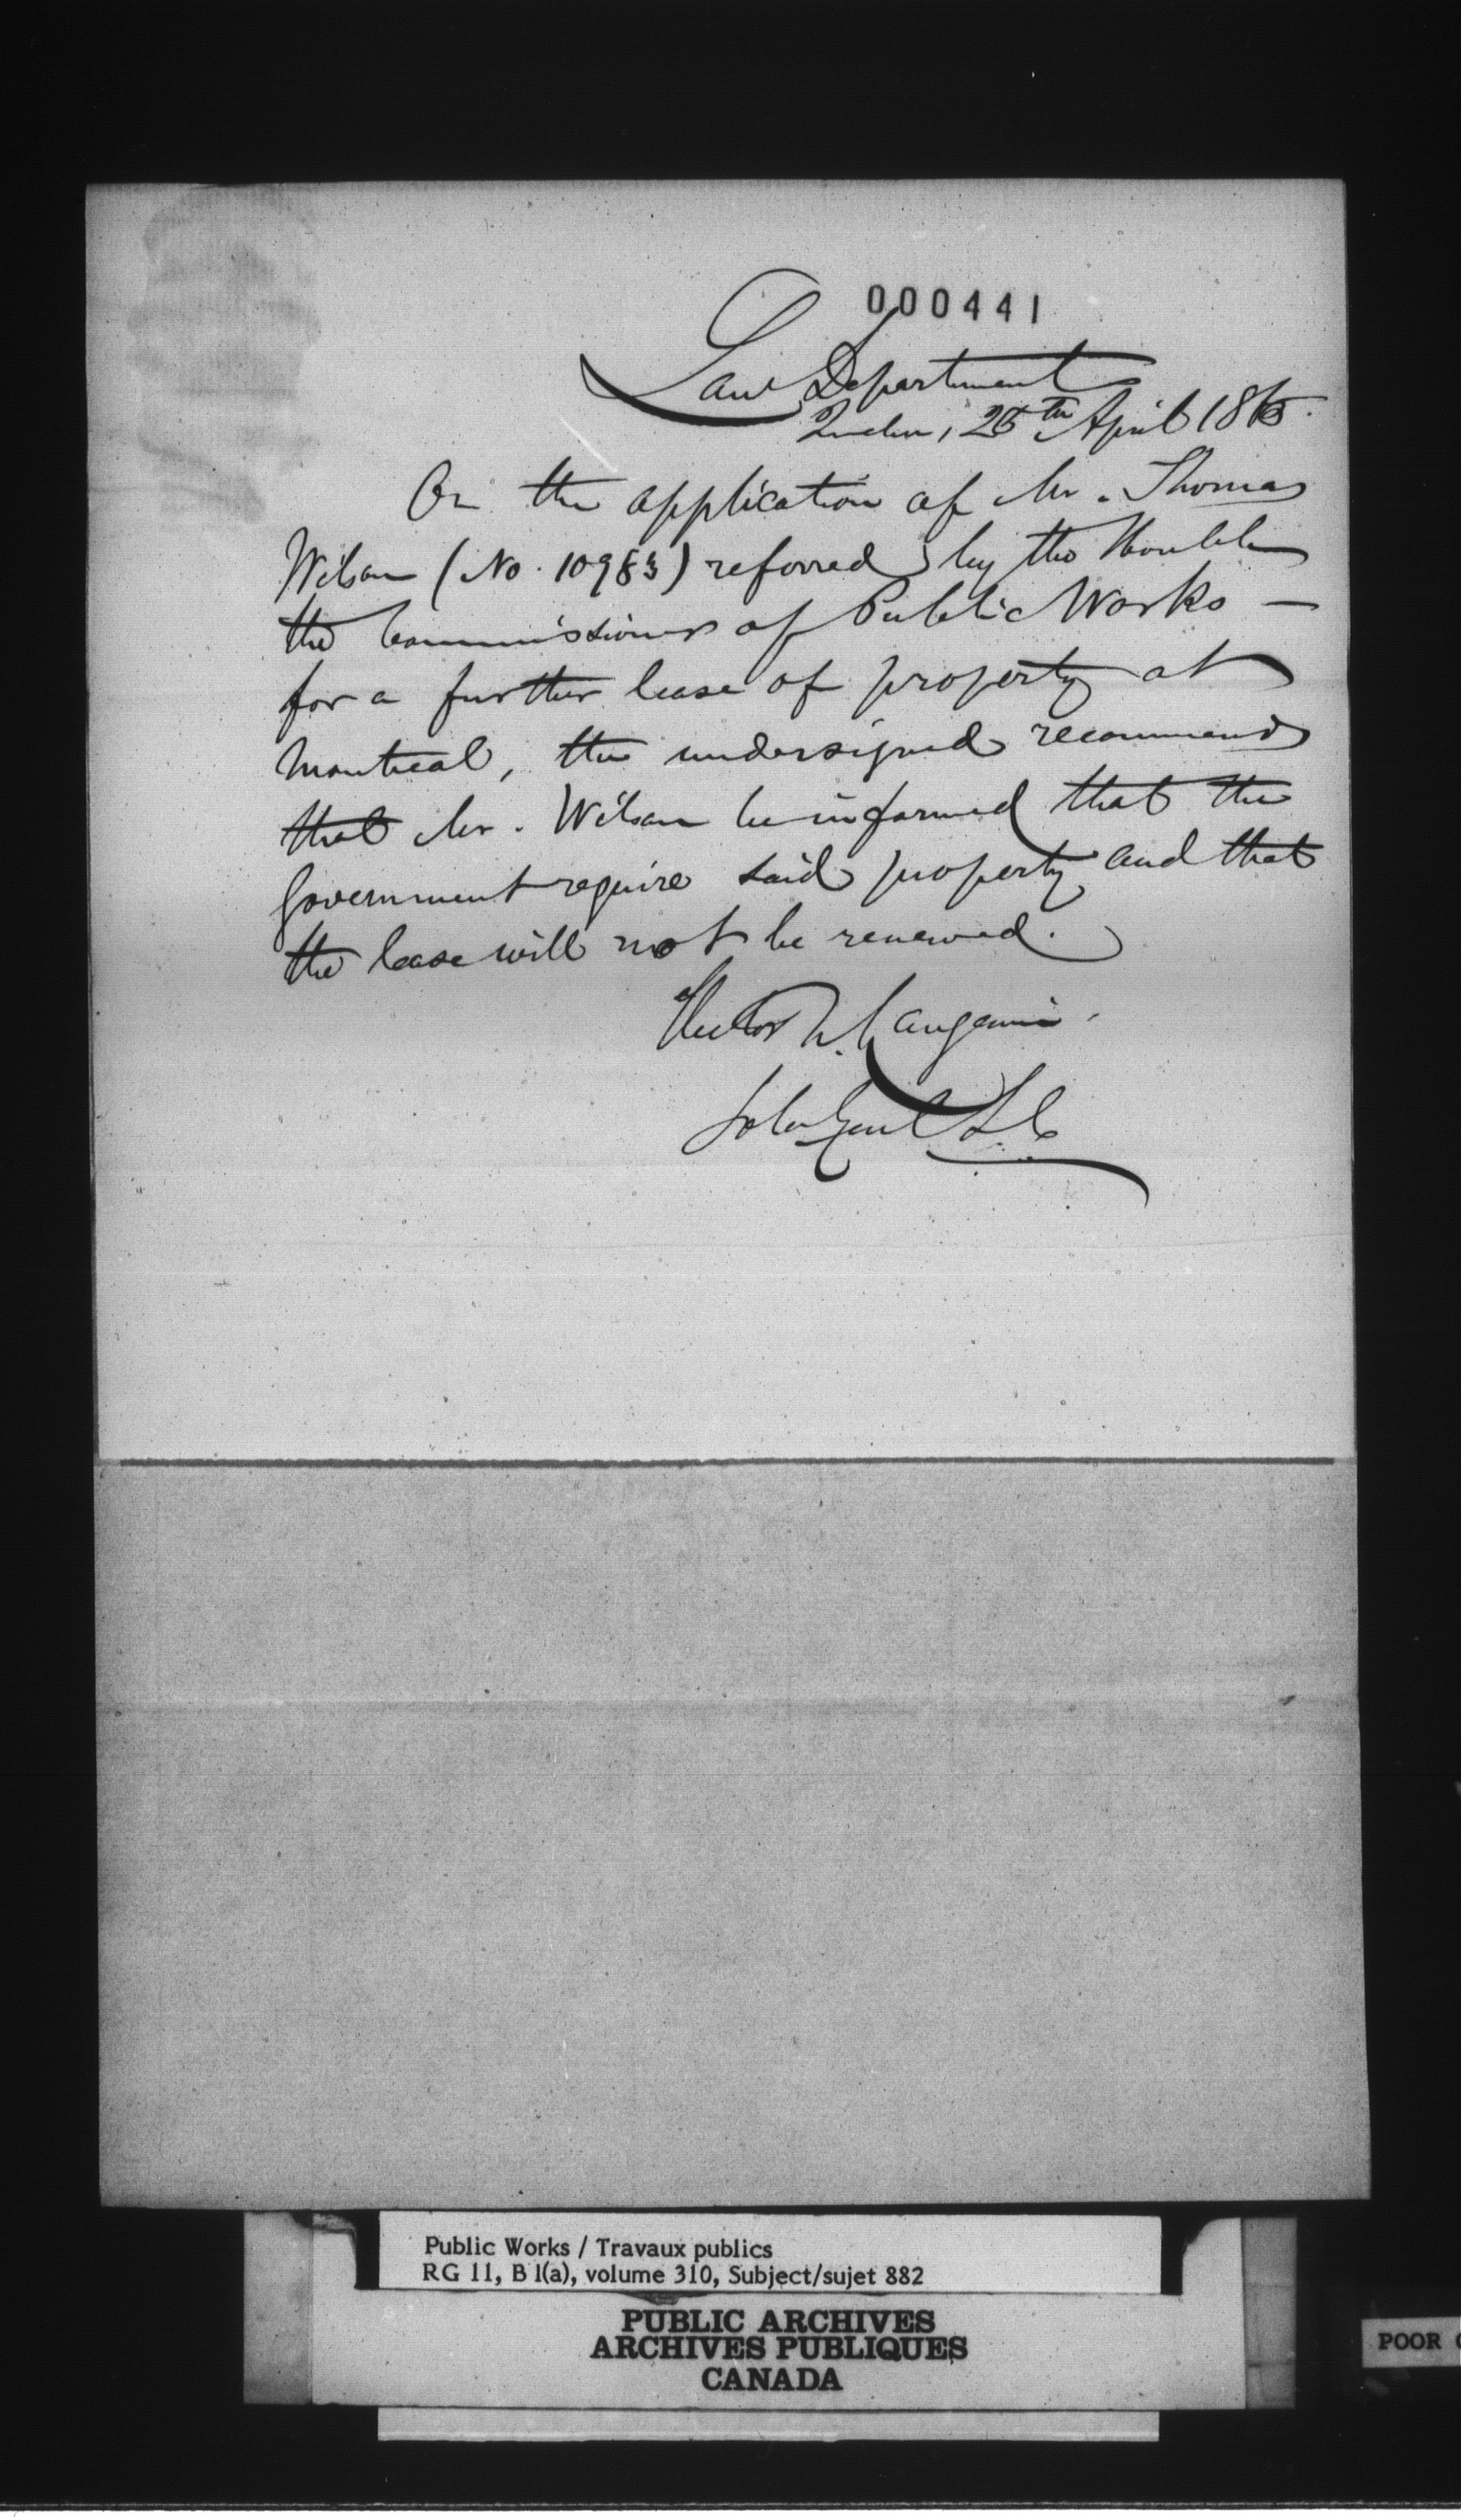 000441
Law Department
Quebec, 25th April 1865.
On the application of Mr. Thomas
Wilson (No. 10983) referred by the Honble
the Commissioner of Public Works —
for a further lease of property at
Montreal, the undersigned recommends
that Mr. Wilson be informed that the
Government require said property and that
the lease will not be renewed.
Hector L. Langevin.
Solr Genl L C
Public Works / Travaux publics
RG 11, B 1(a), volume 310, Subject/sujet 882
PUBLIC ARCHIVES
ARCHIVES PUBLIQUES
CANADA
POOR